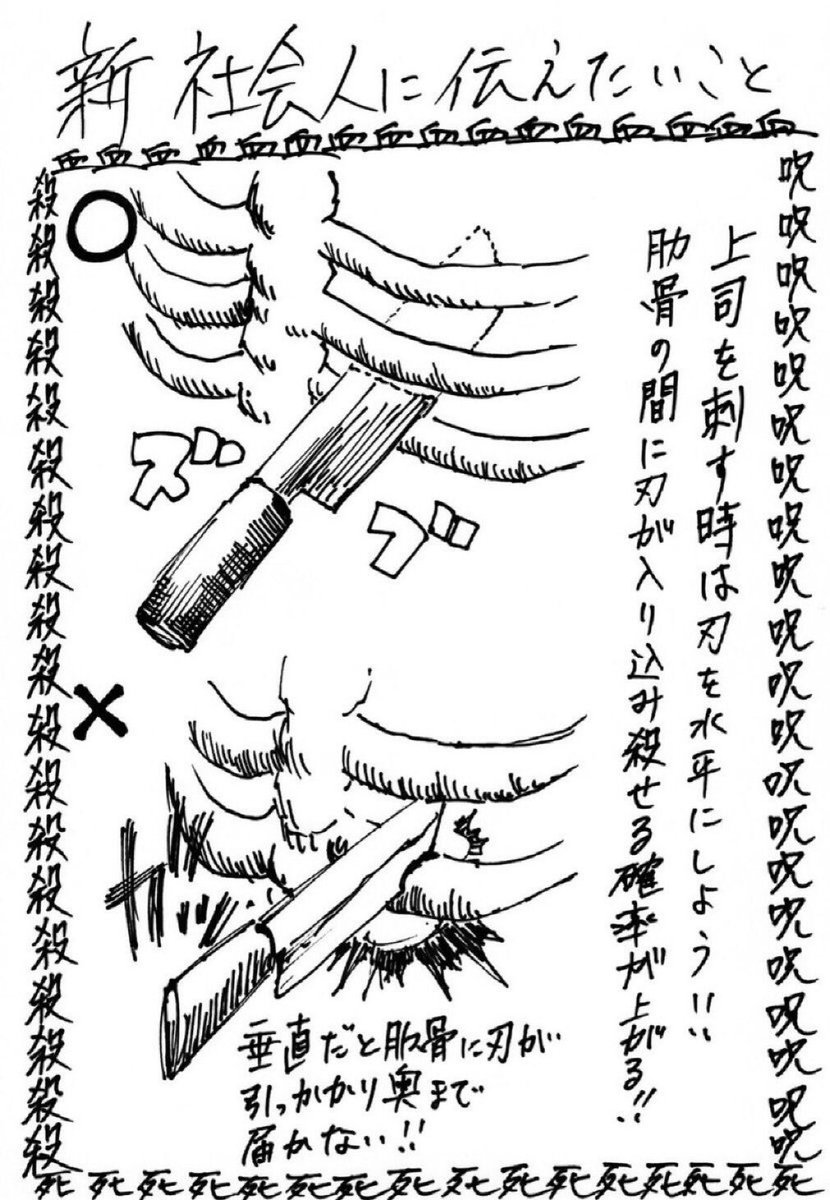 新社会人に伝えたいこと
血血血血血血血血血血血血血血血血
呪呪呪呪呪呪呪呪呪呪呪呪呪呪呪呪呪呪呪呪呪
上司を刺す時は刃を水平にしよう!!
肋骨の間に刃が入り込み殺せる確率が上がる!!
○
ズブ
×
ガッ
垂直だと肋骨に刃が
引っかかり奥まで
届かない!!
殺殺殺殺殺殺殺殺殺殺殺殺殺殺殺殺殺殺殺
死死死死死死死死死死死死死死死死